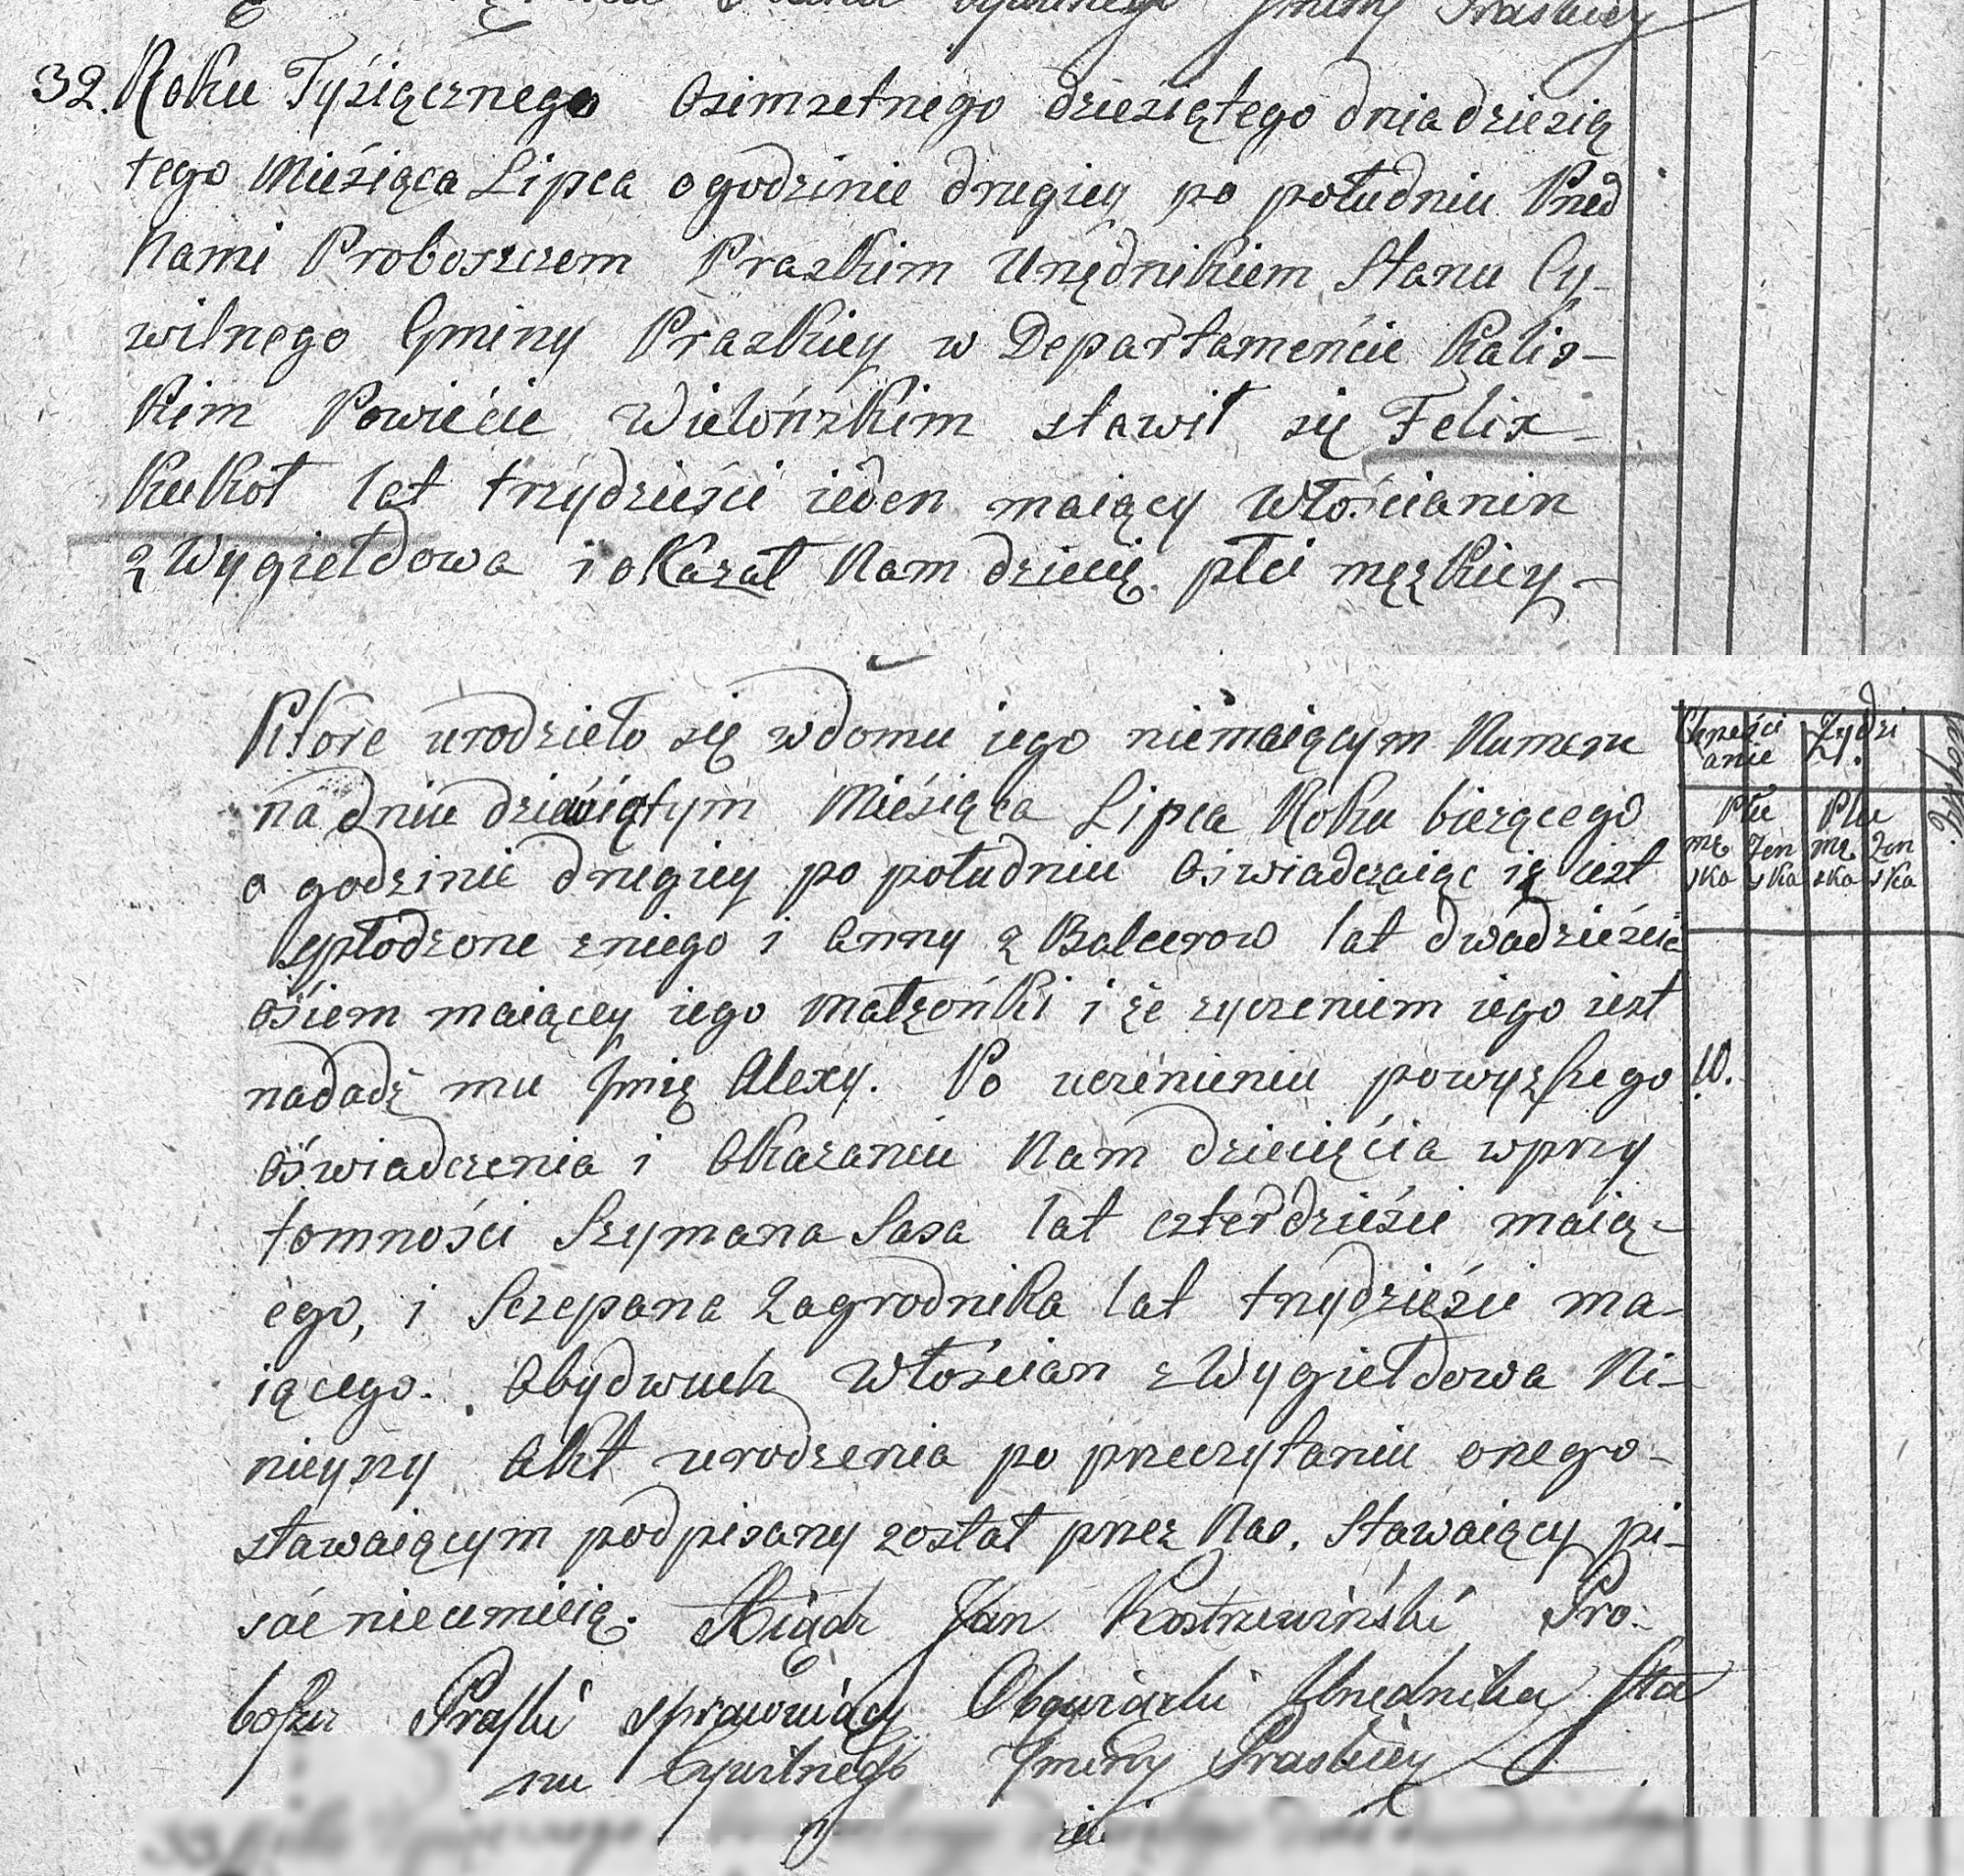 Gminy Praskiey
32. Roku Tysiącznego Osimsetnego dziesiątego dnia dziesią
tego Miesiąca Lipca o godzinie drugiey po południu Przed
Nami Proboszczem Praskim Urzędnikiem Stanu Cy-
wilnego Gminy Praskiey w Departamencie Kalis-
kim Powiecie Wielońskim stawił się Felix
Kukoł lat trzydzieści ieden maiący Włościanin
z Wygiełdowa i okazał Nam dziecię płci męskiey-
Ktore urodzieło się w domu iego niemaiącym Numeru
na dniu dziewiątym Miesiąca Lipca Roku bierzącego
o godzinie drugiey po południu Oświadczaiąc iż iest
spłodzone z niego i Anny z Balcerow lat dwadzieście
ośiem maiącey iego Małżońki i że zyczeniem iego iest
nadadź mu Jmię Alexy. Po uczinieniu powyższego
oświadczenia i Okazaniu Nam dziecięcia w przy
tomności Szymana Sasa lat czterdzieście maią-
cego, i Sczepana Zagrodnika lat trzydzieście ma-
iącego. Obydwuch Włościan z Wygiełdowa Ni-
nieyszy Akt urodzenia po przeczytaniu onego-
stawaiącym podpisany został przez Nas. Stawaiący pi-
sać nieumieią. Xiądz Jan Kostrzewiński Pro-
boszcz Praski sprawuiący Obowiązki Urzędnika Sta
nu Cywilnego Gminy Praskiey
Chrześci
anie
Żydzi
Płci
Płci
mę
ska
Żeń
ska
mę
ska
Żeń
ska
10.